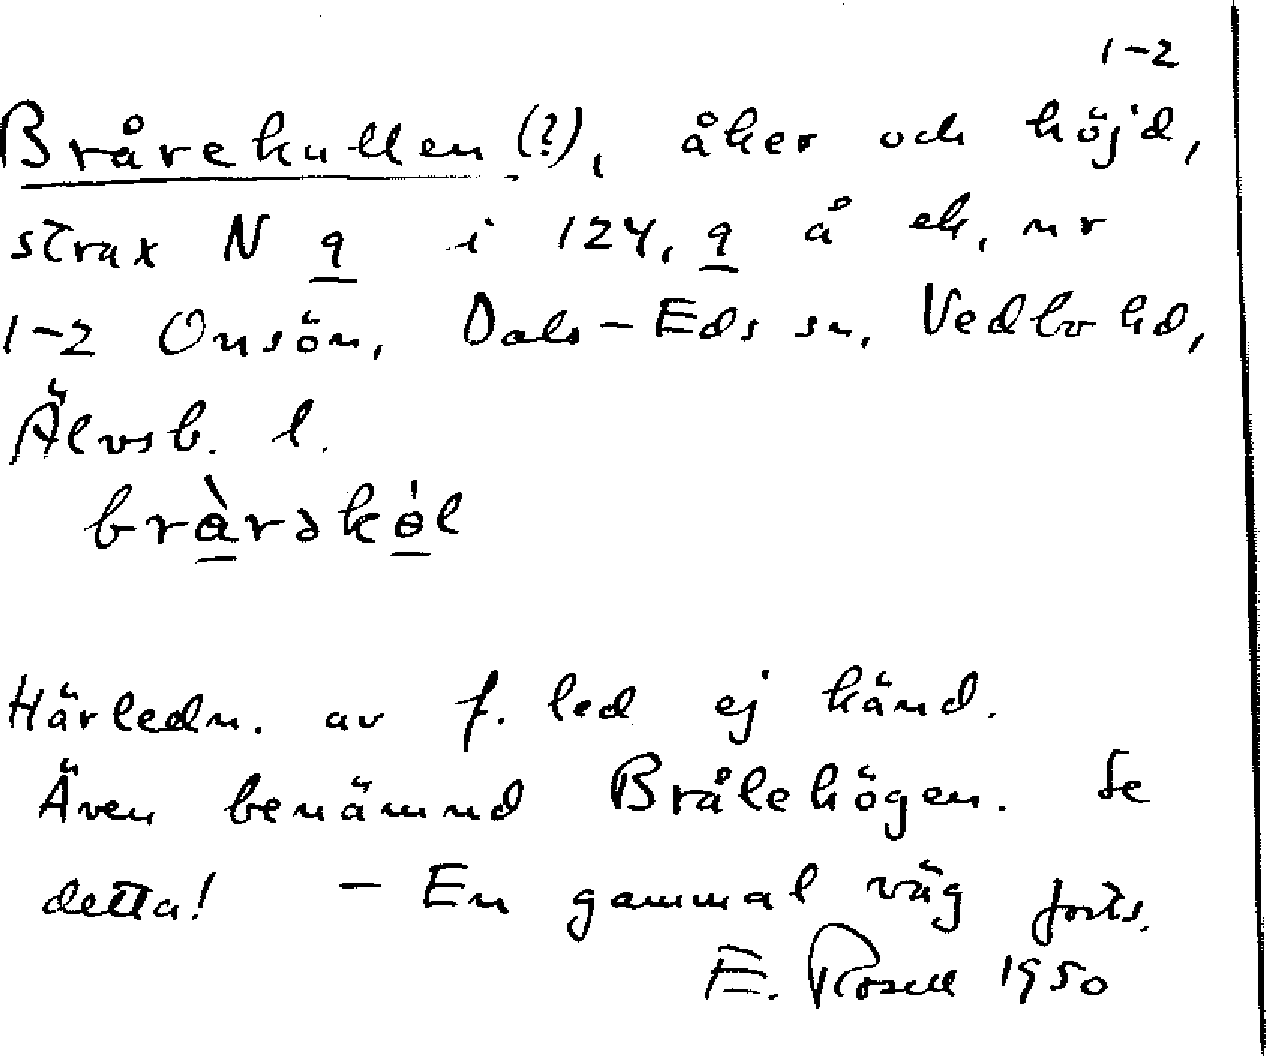 1-2
Brårekullen (?), åker och höjd,
strax N q i 124, q å ek, nr
1-2 Onsön, Dals-Eds sn, Vedbo hd,
Älvsb. l.
bràrəkál
Härledn. av f. led ej känd.
Även benämnd Brålehögen. Se
detta! - En gammal väg forts.
E. Rosell 1950